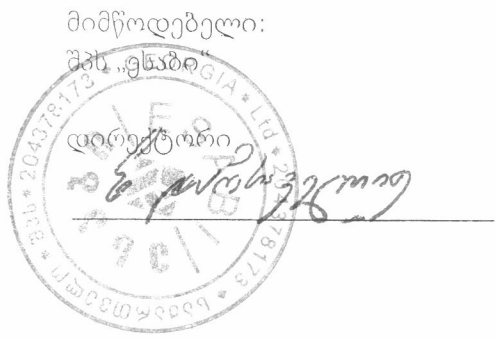 მიმწოდებელი:
შპს „ესაბი“
დირექტორი
შპს * 204378173 * GEORGIA * Ltd * 204378173 * საქართველო *
ESABI
ესაბი